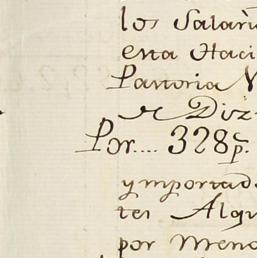 los Salari
esta Haci
Pastoria
de Diz
Por.... 328 p.
y importad
tes Alqu
por Meno